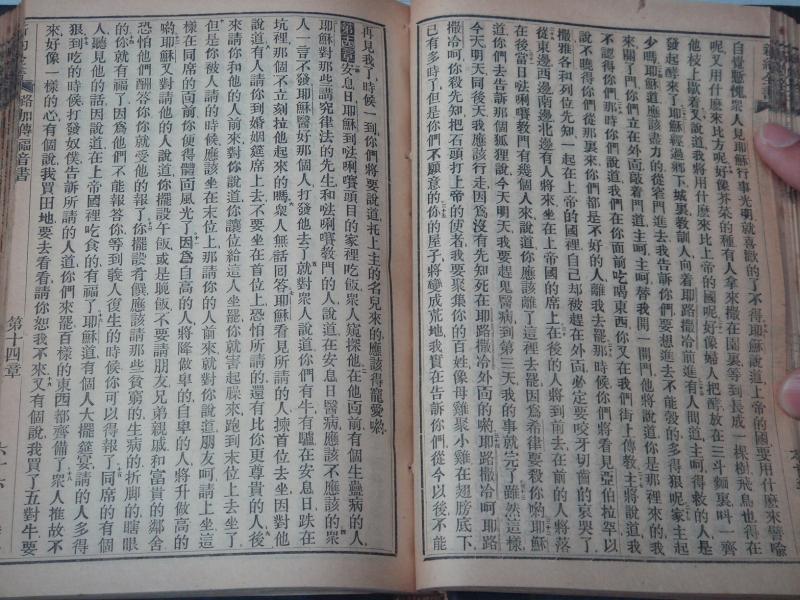 新約全書
自覺慙愧衆人見耶穌行事光明就喜歡的了不得耶穌說道上帝的國要用什麼來譬喻
呢又用什麼來比方呢好像芥菜的種有人拿來撒在園裏等到長成一棵樹飛鳥也得在
他枝上歇着又說道我將用什麼來比上帝的國呢好像婦人把酵放在三斗麵裏呌一齊
發起酵來了耶穌經過鄉下城裏教訓人向着耶路撒冷前進有人問道主呵得救的人是
少嗎耶穌道應該盡力的從窄門進去我告訴你們要想進去不能彀的多得狠呢家主起
來關了門你們立在外面敲着門道主呵主呵替我開一開門他將說道你是那裡來的我
不認得你們那時你們說道我們在你面前吃喝東西你又在我們街上傳教主將說道我
說不曉得你們從那裏來你們都是不好的人離我去罷那時候你們將看見亞伯拉罕以
撒雅各和列位先知一起在上帝的國裡自己却被趕在外面必定要咬牙切齒的哀哭了
從東邊西邊南邊北邊有人將來坐在上帝國的席上在後的人將到前去在前的人將落
在後當日㳒唎㘔教門有幾個人來說道你應該離了這裡去罷因為希律要殺你喲耶穌
道你們去告訴那個狐狸說今天明天我要趕鬼醫病到第三天我的事就完了雖然這樣
今天明天同後天我應該行走因為沒有先知死在耶路撒冷外面的喲耶路撒冷呵耶路
撒冷呵你殺先知把石頭打上帝的使者我要聚集你的百姓像母雞聚小雞在翅膀底下
已有多時了但是你們不願意的你的屋子將變成荒地我實在告訴你們從今以後不能
再見我了時候一到你們將要說道托上主的名兒來的應該得寵愛喲
第十四章安息日耶穌到㳒唎㘔頭目的家裡吃飯衆人窺探他在他面前有個生蠱病的人
耶穌對那些講究律法的先生和㳒唎㘔教門的人說道在安息日醫病應該不應該的衆
人一言不發耶穌醫好那個人打發他去了就對衆人說道你們有牛有驢在安息日跌在
坑裡那個不立刻拉他起來的嗎衆人無話回答耶穌看見所請的人揀首位去坐因對他
說道有人請你到婚姻筵席上去不要坐在首位上恐怕所請的還有比你更尊貴的人後
來請你和他的人前來對你說道你讓位給這人坐罷你就害起臊來跑到末位上去坐了
但是你被人請的時候應該坐在末位上那請你的人前來就對你說道朋友呵請上坐這
樣在同席的面前你便得體面風光了因為自高的人將降做卑的自卑的人將升做高的
喲耶穌又對請他的人說道你擺設午飯或是晚飯不要請朋友兄弟親戚和富貴的鄰舍
恐怕他們酬答你你就受他的報了你擺設肴饌應該請那些貧窮的生病的折脚的瞎眼
的你就有福了因為他們不能報答你等到義人復生的時候你可以得報了同席的有個
人聽見他的話因說道在上帝國裡吃食的有福了耶穌道有個人大擺筵宴請的人多得
狠到吃的時候打發奴僕告訴所請的人道你們來罷百樣的東西都齊備了衆人推故不
來好像一樣的心有個說我買田地要去看看請你恕我不來又有個說我買了五對牛要
路加傳福音書
第十四章